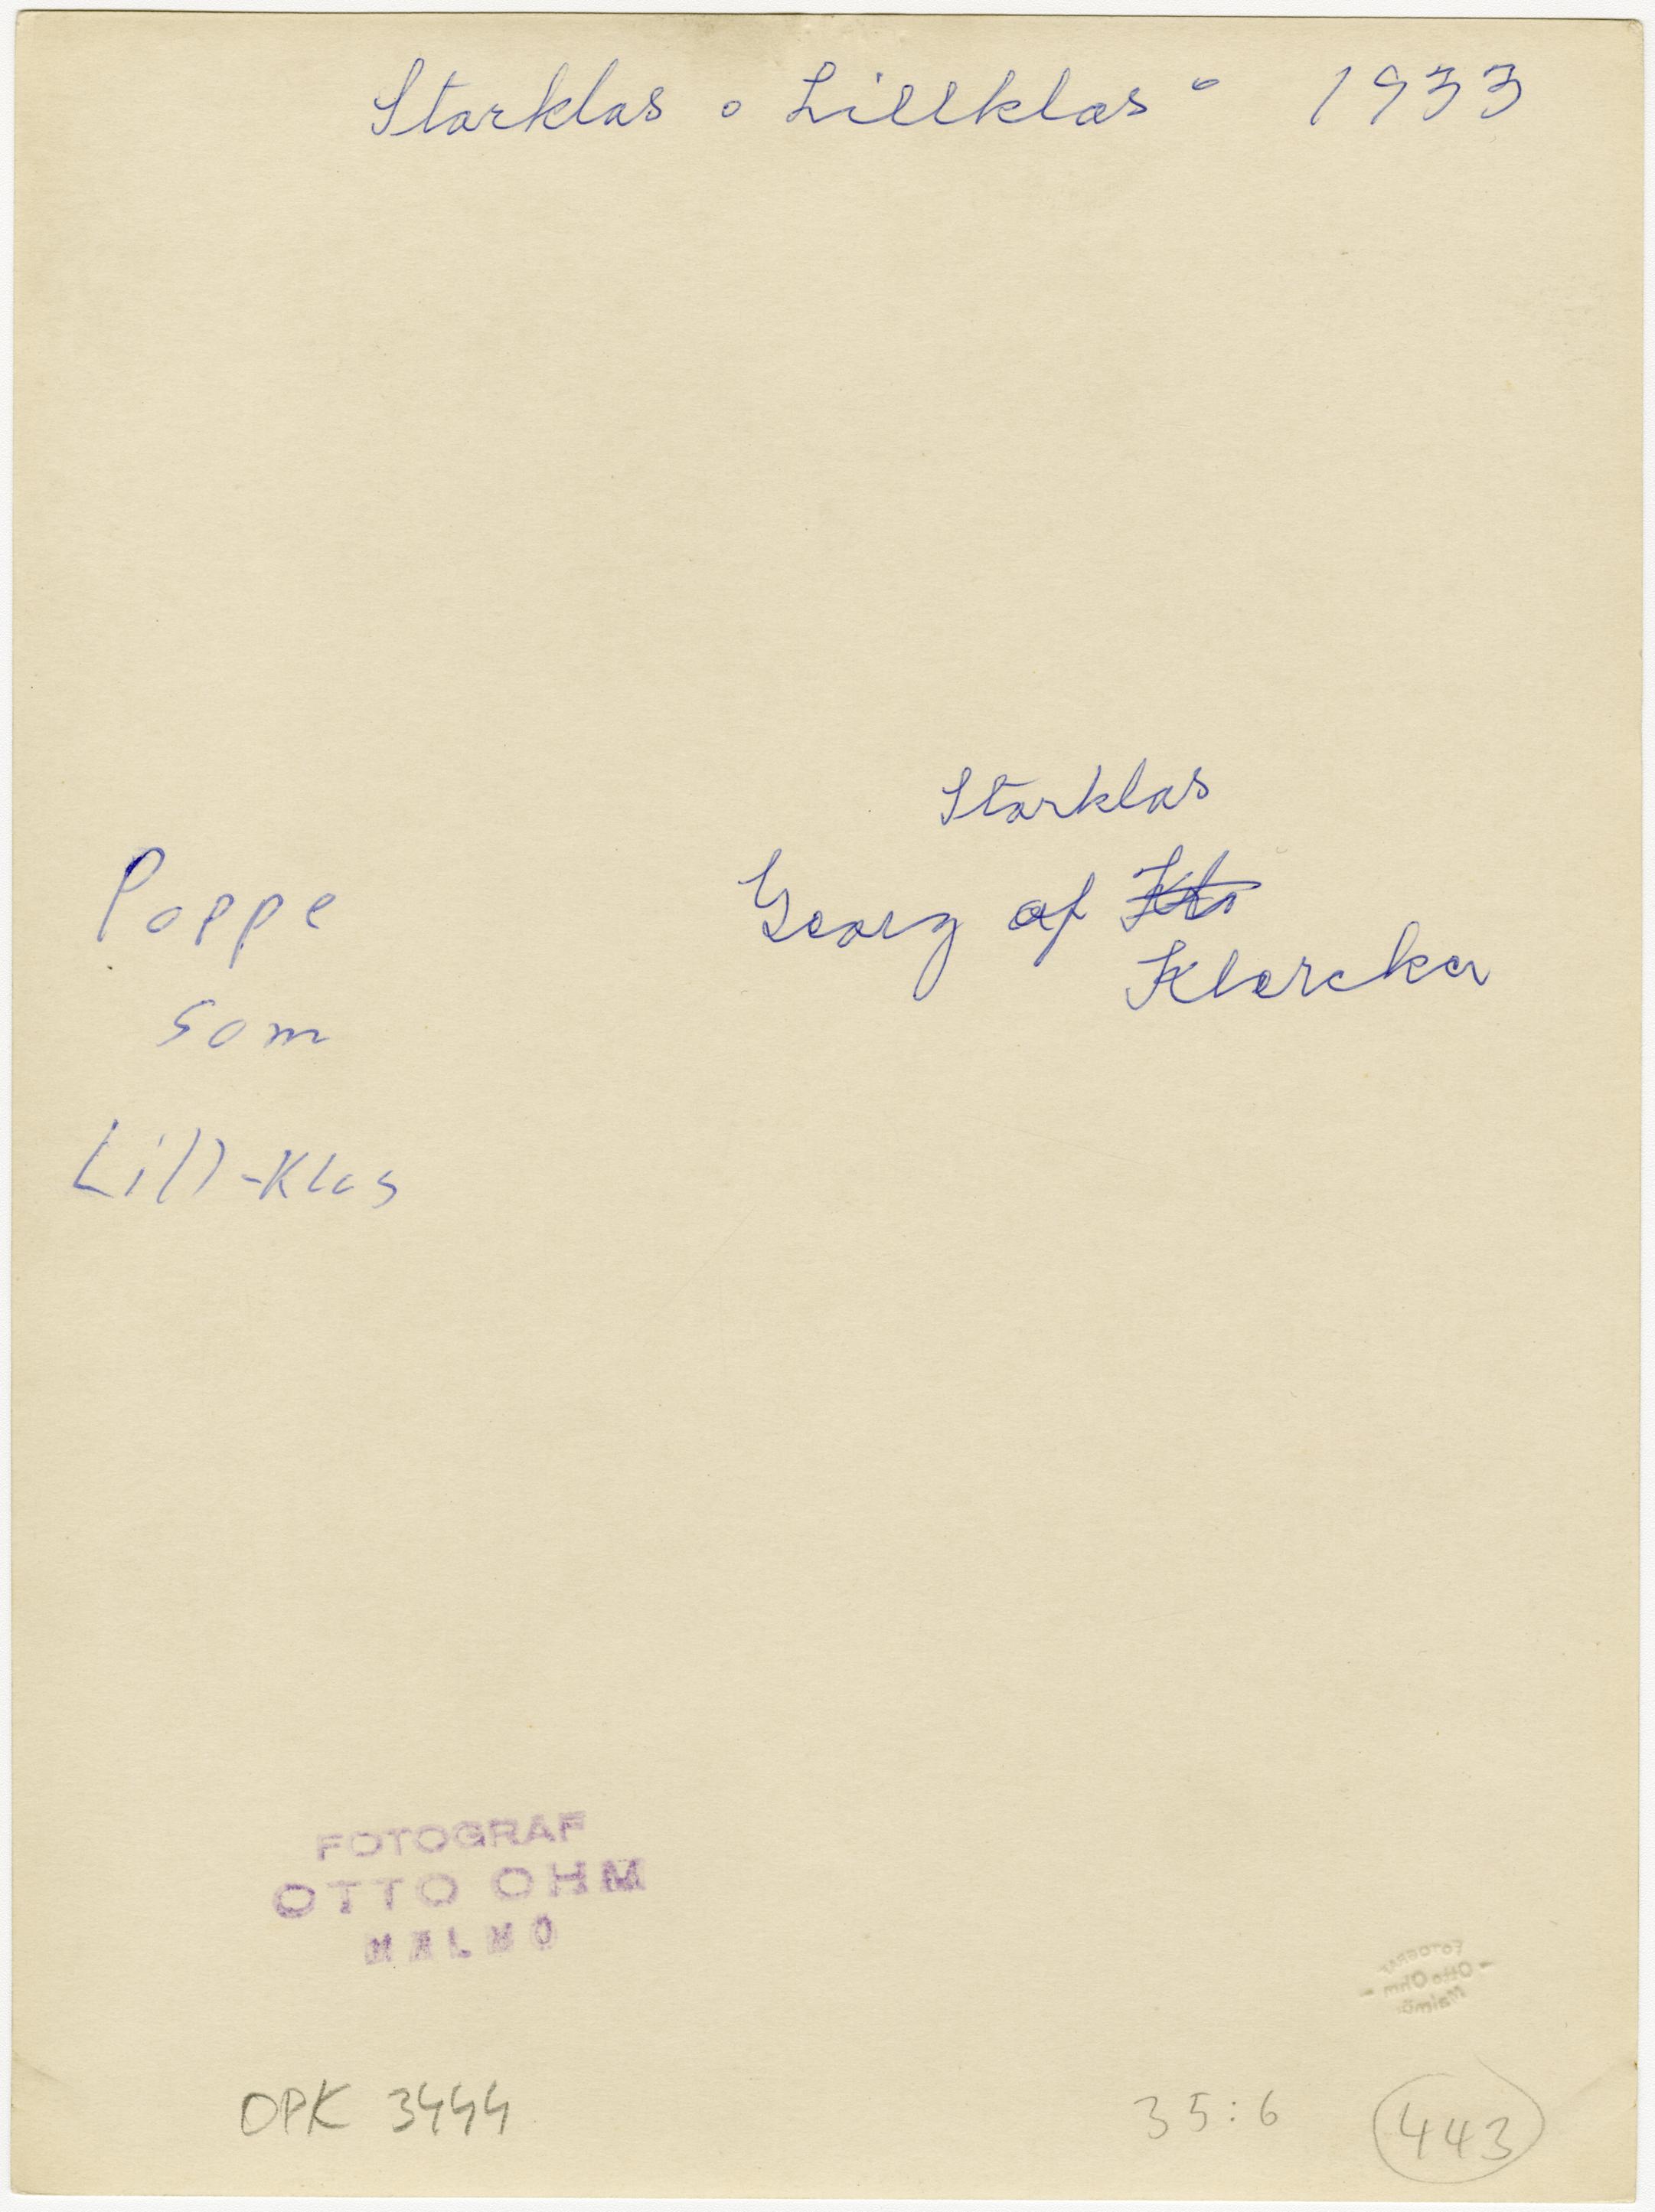 Storklas o Lillklas" 1933
Storklas
Georg af Klo
Klercker
Poppe
som
Lill-Klas
FOTOGRAF
OTTO OHM
MALMÖ
FOTOGRAF
Otto Ohm
Malmö
OPK 3444
35:6 443